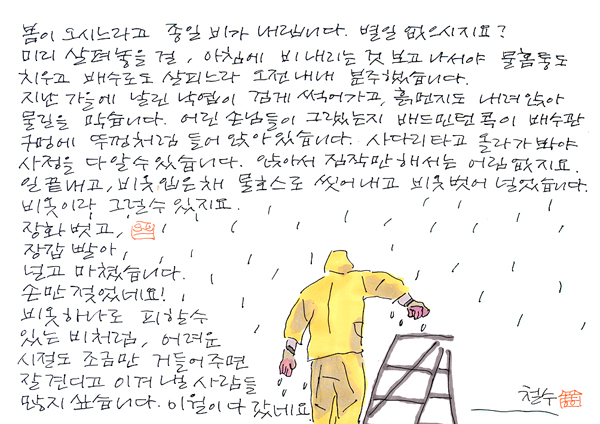 봄이 오시느라고 종일 비가 내립니다. 별일 없으시지요?
미리 살펴놓을 걸, 아침에 비 내리는 것 보고 나서야 물홈통도
치우고 배수로도 살피느라 오전 내내 분주했습니다.
지난 가을에 날린 낙엽이 검게 썩어가고, 흙먼지도 내려앉아
물길을 막습니다. 어린 손님들이 그랬는지 배드민턴 콕이 배수관
구멍에 뚜껑처럼 들어앉아 있습니다. 사다리 타고 올라가 봐야
사정을 다 알 수 있습니다. 앉아서 짐작만 해서는 어림 없지요.
일 끝내고, 비옷 입은 채 물호스로 씻어내고 비옷 벗어 널었습니다.
비옷이라 그럴 수 있지요.
장화 벗고,
장갑 빨아,
널고 마쳤습니다.
손만 젖었네요!
비옷 하나로 피할 수
있는 비처럼, 어려운
시절도 조금만 거들어주면
잘 견디고 이겨낼 사람들
많지 싶습니다. 이월이 다 갔네요.
철수